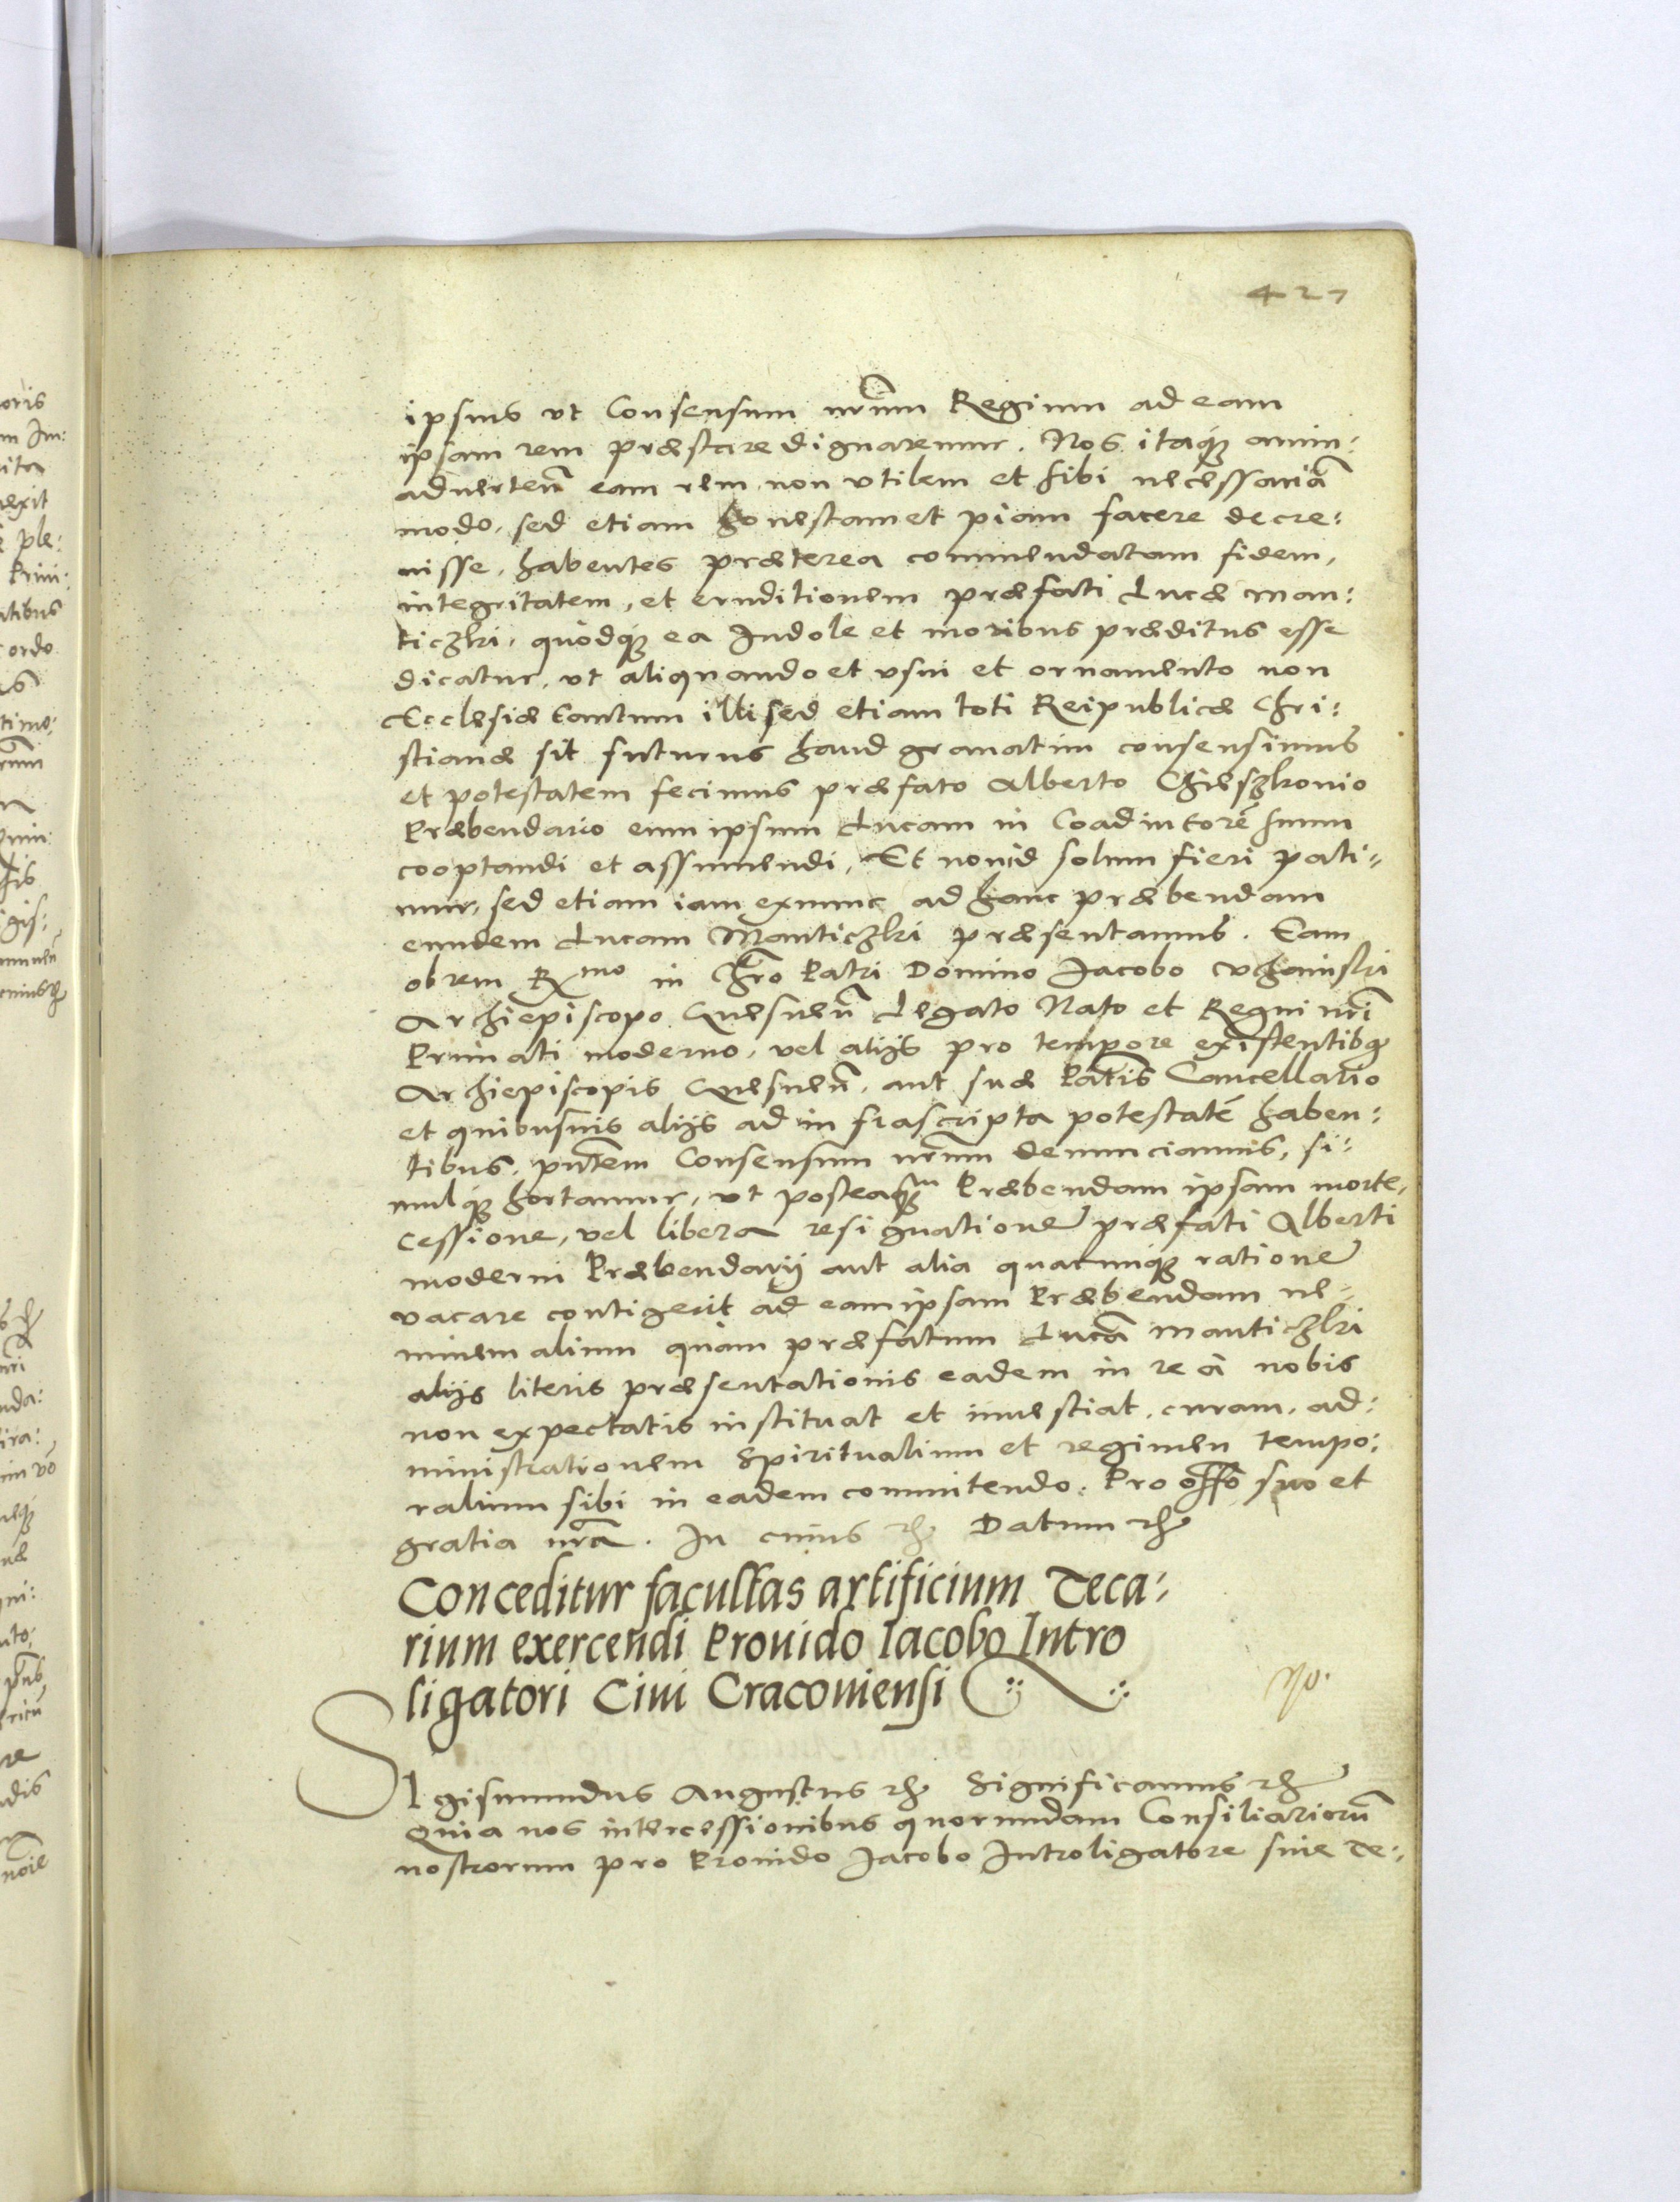 427
ipsius vt Consensum nrũm Regium ad eam
ipsam rem præstare dignaremur. Nos itaq̃ anim:
aduerteñ eam rem non vtilem et sibi necessariã
modo, sed etiam honestam et piam facere decre:
uisse, habentes præterea commendatam fidem,
integritatem, et eruditionem præfati Lucæ Man:
ticzki, quodq̃ ea Indole et moribus præditus esse
dicatur, vt aliquando et vsui et ornamento non
Ecclesiæ tantum illi sed etiam toti Reipublicæ Chri:
stianæ sit futurus haud grauatim consensimus
et potestatem fecimus præfato Alberto Chieszkouio
Præbendario eum ipsum Lucam in Coadiutorẽ suum
cooptandi et assumendi, Et non id solum fieri pati:
mur, sed etiam iam exnunc ad hanc præbendam
eundem Lucam Manticzki præsentamus. Eam
ob rem R^mo in Chr̃o Patri Domino Jacobo Vchainski
Archiepiscopo Gnesneñ Legato Nato et Regni nrĩ
Primati moderno, vel alijs pro tempore existentibq
Archiepiscopis Gnesneñ, aut suæ Pat̃tis Cancellario
et quibusuis alijs ad infrascripta potestatẽ haben:
tibus, pñtem Consensum nrũm denunciamus, si:
mulq̃ hortamur, vt posteaq̃m Præbendam ipsam morte,
cessione, vel libera resignatione præfati Alberti
moderni Præbendarij aut alia quacunq̃ ratione
vacare contigerit ad eam ipsam Præbendam ne:
minem alium quam præfatum Lucã Manticzki
alijs literis præsentationis eadem in re à nobis
non expectatis instituat et inuestiat, curam, ad:
ministrationem Spiritualium et regimen tempo:
ralium sibi in eadem committendo. Pro offõ suo et
gratia nrã. In cuius rֿ Datum rֿ
Conceditur facultas artificium Teca:
rium exercendi Prouido Iacobo Intro
ligatori Ciui Cracouiensi
SIgismundus Augustus rֿ Significamus rֿ
Quia nos intercessionibus quorundam Consiliariorũ
nostrorum pro Prouido Jacobo Introligatore siue Te: